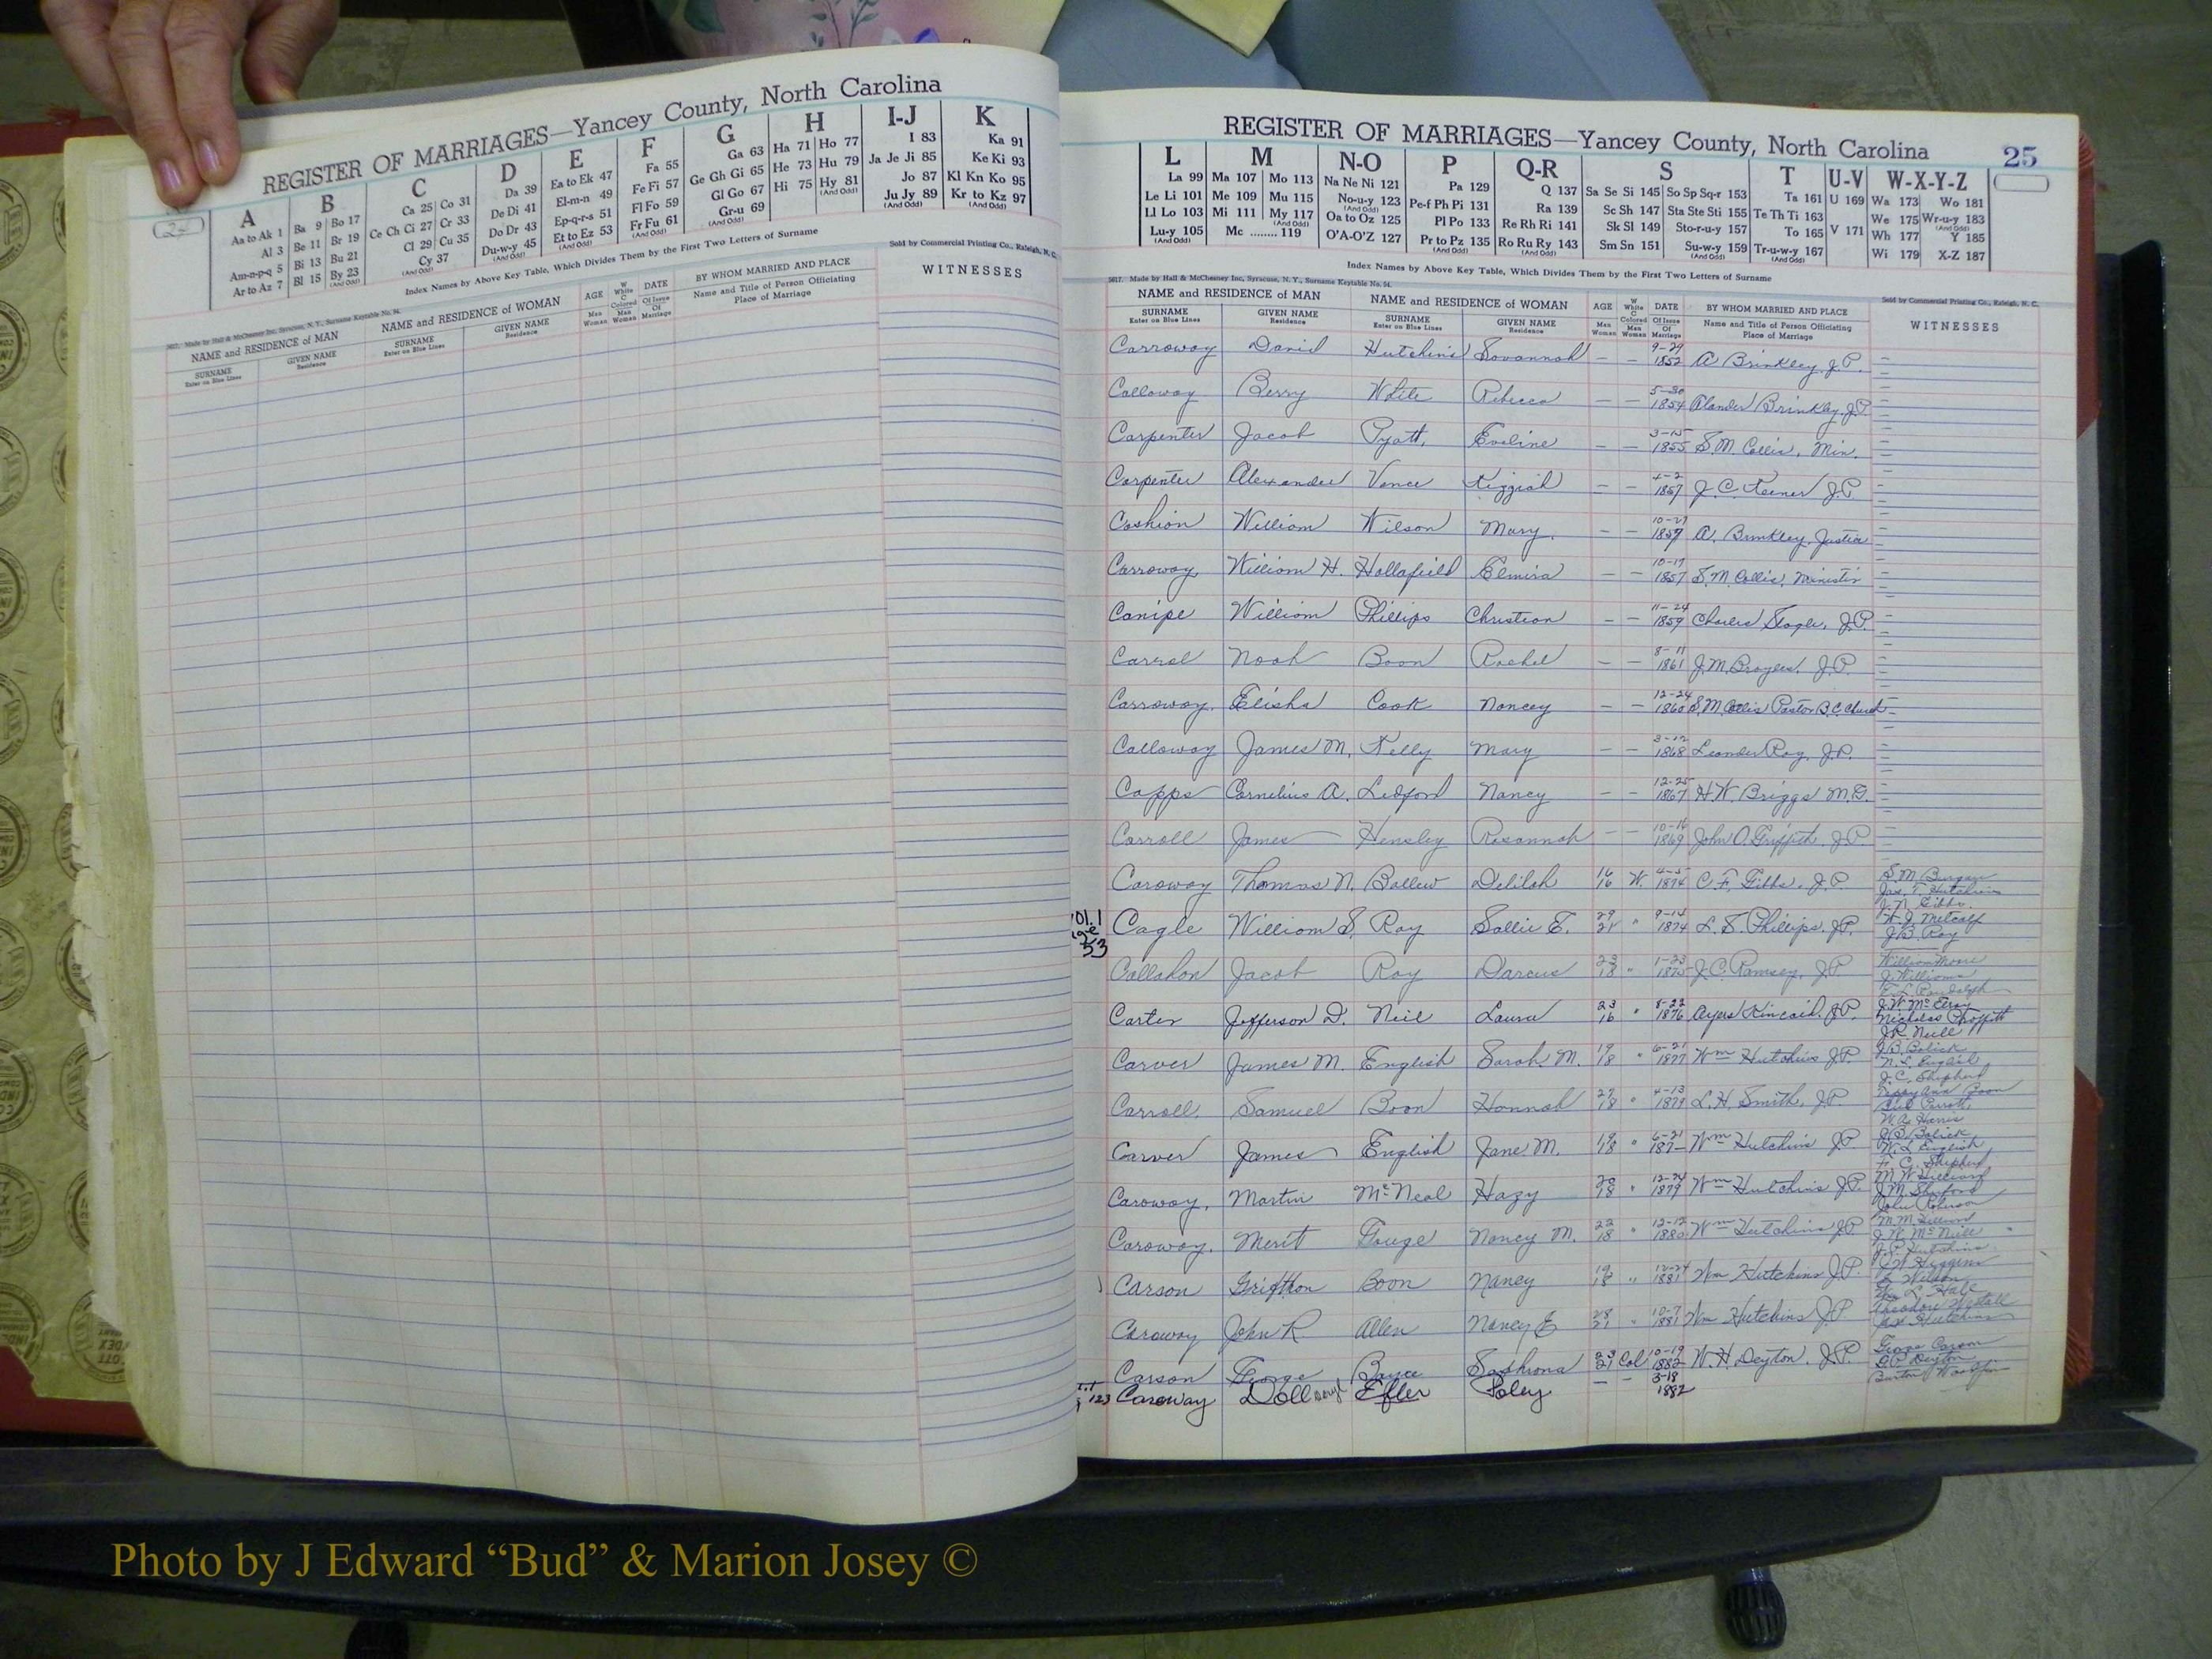 REGISTER OF MARRIAGES—Yancey County, North Carolina
24
A B C D E F G H I-J K
Aa to Ak 1 Ba 9 Bo 17 Ca 25 Co 31 Da 39 Ea to Ek 47 Fa 55 Ga 63 Ha 71 Ho 77 I 83 Ka 91
Al 3 Be 11 Br 19 Ce Ch Ci 27 Cr 33 De Di 41 El-m-n 49 Fe Fi 57 Ge Gh Gi 65 He 73 Hu 79 Ja Je Ji 85 Ke Ki 93
Am-n-p-q 5 Bi 13 Bu 21 Cl 29 Cu 35 Do Dr 43 Ep-q-r-s 51 Fl Fo 59 Gl Go 67 Hi 75 Hy 81 Jo 87 Kl Kn Ko 95
Ar to Az 7 Bl 15 By 23 Cy 37 Du-w-y 45 Et to Ez 53 Fr Fu 61 Gr-u 69 Ju Jy 89 Kr to Kz 97
(And Odd) (And Odd) (And Odd) (And Odd) (And Odd) (And Odd) (And Odd) (And Odd)
Index Names by Above Key Table, Which Divides Them by the First Two Letters of Surname
Sold by Commercial Printing Co., Raleigh, N. C.
5617. Made by Hall & McChesney Inc, Syracuse, N. Y., Surname Keytable No. 54.
NAME and RESIDENCE of MAN NAME and RESIDENCE of WOMAN AGE W White C Colored DATE BY WHOM MARRIED AND PLACE WITNESSES
SURNAME GIVEN NAME SURNAME GIVEN NAME Man Woman Man Woman Of Issue Of Marriage Name and Title of Person Officiating
Enter on Blue Lines Residence Enter on Blue Lines Residence Place of Marriage
REGISTER OF MARRIAGES—Yancey County, North Carolina 25
L M N-O P Q-R S T U-V W-X-Y-Z
La 99 Ma 107 Mo 113 Na Ne Ni 121 Pa 129 Q 137 Sa Se Si 145 So Sp Sq-r 153 Ta 161 U 169 Wa 173 Wo 181
Le Li 101 Me 109 Mu 115 No-u-y 123 Pe-f Ph Pi 131 Ra 139 Sc Sh 147 Sta Ste Sti 155 Te Th Ti 163 We 175 Wr-u-y 183
Ll Lo 103 Mi 111 My 117 Oa to Oz 125 Pl Po 133 Re Rh Ri 141 Sk Sl 149 Sto-r-u-y 157 To 165 V 171 Wh 177 Y 185
Lu-y 105 Mc ........ 119 O'A-O'Z 127 Pr to Pz 135 Ro Ru Ry 143 Sm Sn 151 Su-w-y 159 Tr-u-w-y 167 Wi 179 X-Z 187
(And Odd) (And Odd) (And Odd) (And Odd) (And Odd) (And Odd) (And Odd)
Index Names by Above Key Table, Which Divides Them by the First Two Letters of Surname
5617. Made by Hall & McChesney Inc, Syracuse, N. Y., Surname Keytable No. 54.
Sold by Commercial Printing Co., Raleigh, N. C.
NAME and RESIDENCE of MAN NAME and RESIDENCE of WOMAN AGE W White C Colored DATE BY WHOM MARRIED AND PLACE WITNESSES
SURNAME GIVEN NAME SURNAME GIVEN NAME Man Woman Man Woman Of Issue Of Marriage Name and Title of Person Officiating
Enter on Blue Lines Residence Enter on Blue Lines Residence Place of Marriage
Carroway David Hutchins Savannah — — 9-29 1852 A Brinkley, J.P.
Calloway Berry White Rebecca — — 5-30 1854 Alander Brinkley, J.P.
Carpenter Jacob Pyatt, Eveline — — 3-15 1855 S.M. Collis, Min.
Carpenter Alexander Vance Kizziah — — 4-2 1857 J. C. Keener J.P.
Cashion William Wilson Mary. — — 1857 A. Brinkley, Justice
Carroway William H. Hollafield Elmira — — 10-19 1857 S.M. Collis, Minister
Canipe William Phillips Christian — — 11-24 1859 Charles Slagle, J.P.
Carrel Noah Boon Rachel — — 8-11 1861 J.M. Broyles, J.P.
Carroway. Elisha Cook Nancey — — 12-24 1860 S.M. Collis Pastor B.C. Church
Calloway James M. Kelly Mary — — 1868 Leander Ray, J.P.
Capps Cornelius A. Ledford Nancy — — 12-25 1867 H.W. Briggs M.G.
Carroll James Hensley Rosannah — — 10-16 1869 John O. Griffith, J.P.
Caroway Thomas N. Ballew Delilah 16 16 W. 4-5 1874 C. F. Gibbs, J.P.
Jas. T. Hutchins
J. N. Gibbs.
Cagle William S. Ray Sallie E. 29 21 " 9-14 1874 L. S. Phillips, J.P.
W. J. Metcalf
J.B. Ray
53
Callahon Jacob Ray Darcus 23 18 " 1-23 1875 J.C. Ramsey, J.P.
William Moore
J. Williams
E. L. Randolph
Carter Jefferson D. Neil Laura 23 16 " 8-22 1876 Ayers Kincaid, J.P.
J.W. McElroy
Nicholas Proffitt
J.R. Neill
Carver James M. English Sarah M. 19 18 " 6-21 1877 Wm Hutchins J.P.
J.B. Bolick
N. L. English
J. C. Shepherd
Carroll, Samuel Boon Hannah 18 " 4-13 1879 L.H. Smith, J.P.
Carver James English Jane M. 19 18 " 6-21 187– Wm Hutchins J.P.
J.B. Bolick
Caroway, Martin McNeal Hazy 20 18 " 12-24 1879 Wm Hutchins J.P.
Caroway. Merit Gouge Nancy M. 22 18 " 12-12 1880 Wm Hutchins J.P.
J. P. Hutchins
Carson Grifthon Boon Nancy 19 18 " 12-24 1881 Wm Hutchins J.P.
Caroway John R. Allen Nancy E 28 21 " 10-7 1881 Wm Hutchins J.P.
Carson George 23 21 Col 10-19 1882 W.H. Deyton, J.P.
George Carson
Caroway Doll Efler Poley — — 3-18 1882
123
Photo by J Edward “Bud” & Marion Josey ©